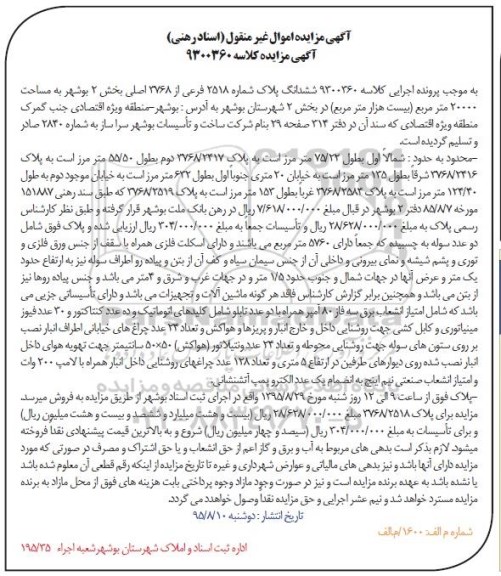 آگهی مزایده اموال غیر منقول (اسناد رهنی)
آگهی مزایده کلاسه ۹۳۰۰۳۶۰
به موجب پرونده اجرایی کلاسه ۹۳۰۰۳۶۰ ششدانگ پلاک شماره ۲۵۱۸ فرعی از ۳۷۶۸ اصلی بخش ۲ بوشهر به مساحت
۲۰۰۰۰ متر مربع (بیست هزار متر مربع) در بخش ۲ شهرستان بوشهر به آدرس : بوشهر-منطقه ویژه اقتصادی جنب گمرک
منطقه ویژه اقتصادی که سند آن در دفتر ۳۱۴ صفحه ۲۹ بنام شرکت ساخت و تأسیسات بوشهر سرا ساز به شماره ۲۸۴۰ صادر
و تسلیم گردیده است.
-محدود به حدود : شمالاً اول بطول ۷۵/۲۳ متر مرز است به پلاک ۳۷۶۸/۲۴۱۷ دوم بطول ۵۵/۵۰ متر مرز است به پلاک
۳۷۶۸/۲۴۱۶ شرقاً بطول ۱۲۵ متر مرز است به خیابان ۲۰ متری جنوبا اول بطول ۶۲۲ متر مرز است به خیابان موجود دوم به طول
۱۲۴/۴۰ متر مرز است به پلاک ۳۷۶۸/۲۵۸۳ غربا بطول ۱۵۳ متر مرز است به پلاک ۳۷۶۸/۲۵۱۹ که طبق سند رهنی ۱۵۱۸۸۷
مورخه ۸۵/۸/۷ دفتر ۲ بوشهر در قبال مبلغ ۷/۶۱۸/۰۰۰/۰۰۰ ریال در رهن بانک ملت بوشهر قرار گرفته و طبق نظر کارشناس
رسمی پلاک به مبلغ ۲۸/۶۲۸/۰۰۰/۰۰۰ ریال و تأسیسات جمعاً به مبلغ ۳۰۴/۰۰۰/۰۰۰ ریال ارزیابی شده و پلاک فوق شامل
دو عدد سوله به چسبیده که جمعاً دارای ۵۷۶۰ متر مربع می باشند و دارای اسکلت فلزی همراه با سقف از جنس ورق فلزی و
توری و پشم شیشه و نمای بیرونی و داخلی آن از جنس سیمان سیاه و کف آن از بتن و پیاده رو اطراف سوله نیز به ارتفاع حدود
یک متر و عرض آنها در جهات شمال و جنوب حدود ۱/۵ متر و در جهات غرب و شرق و ۴متر می باشد و جنس پیاده روها نیز
از بتن می باشد و همچنین برابر گزارش کارشناس فاقد هر گونه ماشین آلات و تجهیزات می باشد و دارای تأسیساتی جزیی می
باشد که شامل امتیاز انشعاب برق سه فاز ۸۰ آمپر همراه با دو عدد تابلو شامل کلیدهای اتوماتیک و ده عدد کنتاکتور و ۳۰ عدد فیوز
مینیاتوری و کابل کشی جهت روشنایی داخل و خارج انبار و پریزها و هواکش و تعداد ۲۳ عدد چراغ های خیابانی اطراف انبار نصب
بر روی ستون های سوله جهت روشنایی محوطه و تعداد ۲۴ عدد ونتیلاتور (هواکش) ۵۰×۵۰ سانتیمتر جهت تهویه هوای داخل
انبار نصب شده روی دیوارهای طرفین در ارتفاع ۵ متری و تعداد ۱۲۸ عدد چراغهای روشنایی داخل انبار همراه با لامپ ۲۰۰ وات
و امتیاز انشعاب صنعتی نیم اینچ به انضمام یک عدد الکترو پمپ آتشنشانی
-پلاک فوق از ساعت ۹ الی ۱۲ روز شنبه مورخ ۱۳۹۵/۸/۲۹ واقع در اجرای ثبت اسناد بوشهر از طریق مزایده به فروش میرسد.
مزایده برای پلاک ۳۷۶۸/۲۵۱۸ مبلغ ۲۸/۶۲۸/۰۰۰/۰۰۰ ریال (بیست و هشت میلیارد و ششصد و بیست و هشت میلیون ریال)
و برای تأسیسات به مبلغ ۳۰۴/۰۰۰/۰۰۰ ریال (سیصد و چهار میلیون ریال) شروع و به بالاترین قیمت پیشنهادی نقداً فروخته
میشود. لازم بذکر است بدهی های مربوط به آب و برق و گاز اعم از حق انشعاب و یا حق اشتراک و مصرف در صورتی که مورد
مزایده دارای آنها باشد و نیز بدهی های مالیاتی و عوارض شهرداری و غیره تا تاریخ مزایده از اینکه رقم قطعی آن معلوم شده باشد
یا نشده باشد به عهده برنده مزایده است و نیز در صورت وجود مازاد وجوه پرداختی بابت هزینه های فوق از محل مازاد به برنده
مزایده مسترد خواهد شد و نیم عشر اجرایی و حق مزایده نقدا وصول خواهد می گردد.
تاریخ انتشار : دوشنبه ۹۵/۸/۱۰
شماره م الف: ۱۶۰۰/م/الف
اداره ثبت اسناد و املاک شهرستان بوشهرشعبه اجراء ۱۹۵/۳۵